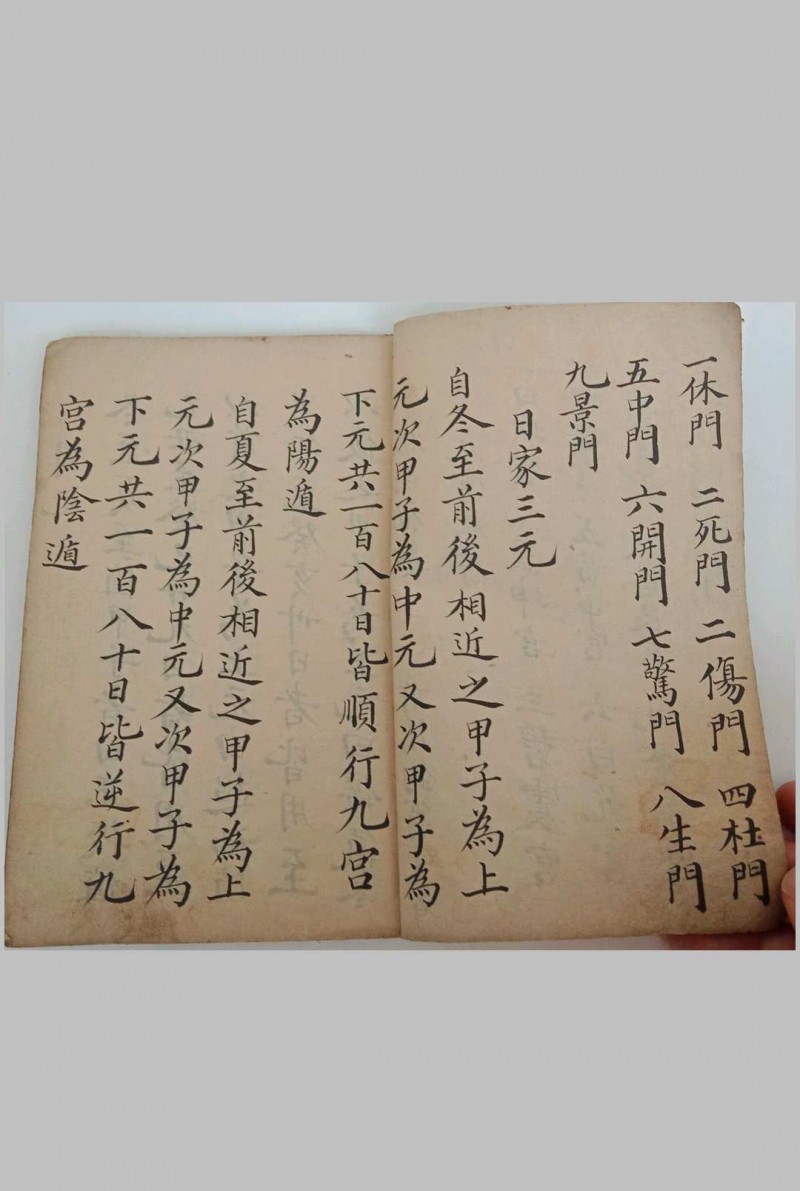 一休門 二死門 二傷門 四杜門
五中門 六開門 七驚門 八生門
九景門
日家三元
自冬至前後相近之甲子為上
元次甲子為中元又次甲子為
下元共一百八十日皆順行九宮
為陽遁
自夏至前後相近之甲子為上
元次甲子為中元又次甲子為
下元共一百八十日皆逆行九
宮為陰遁